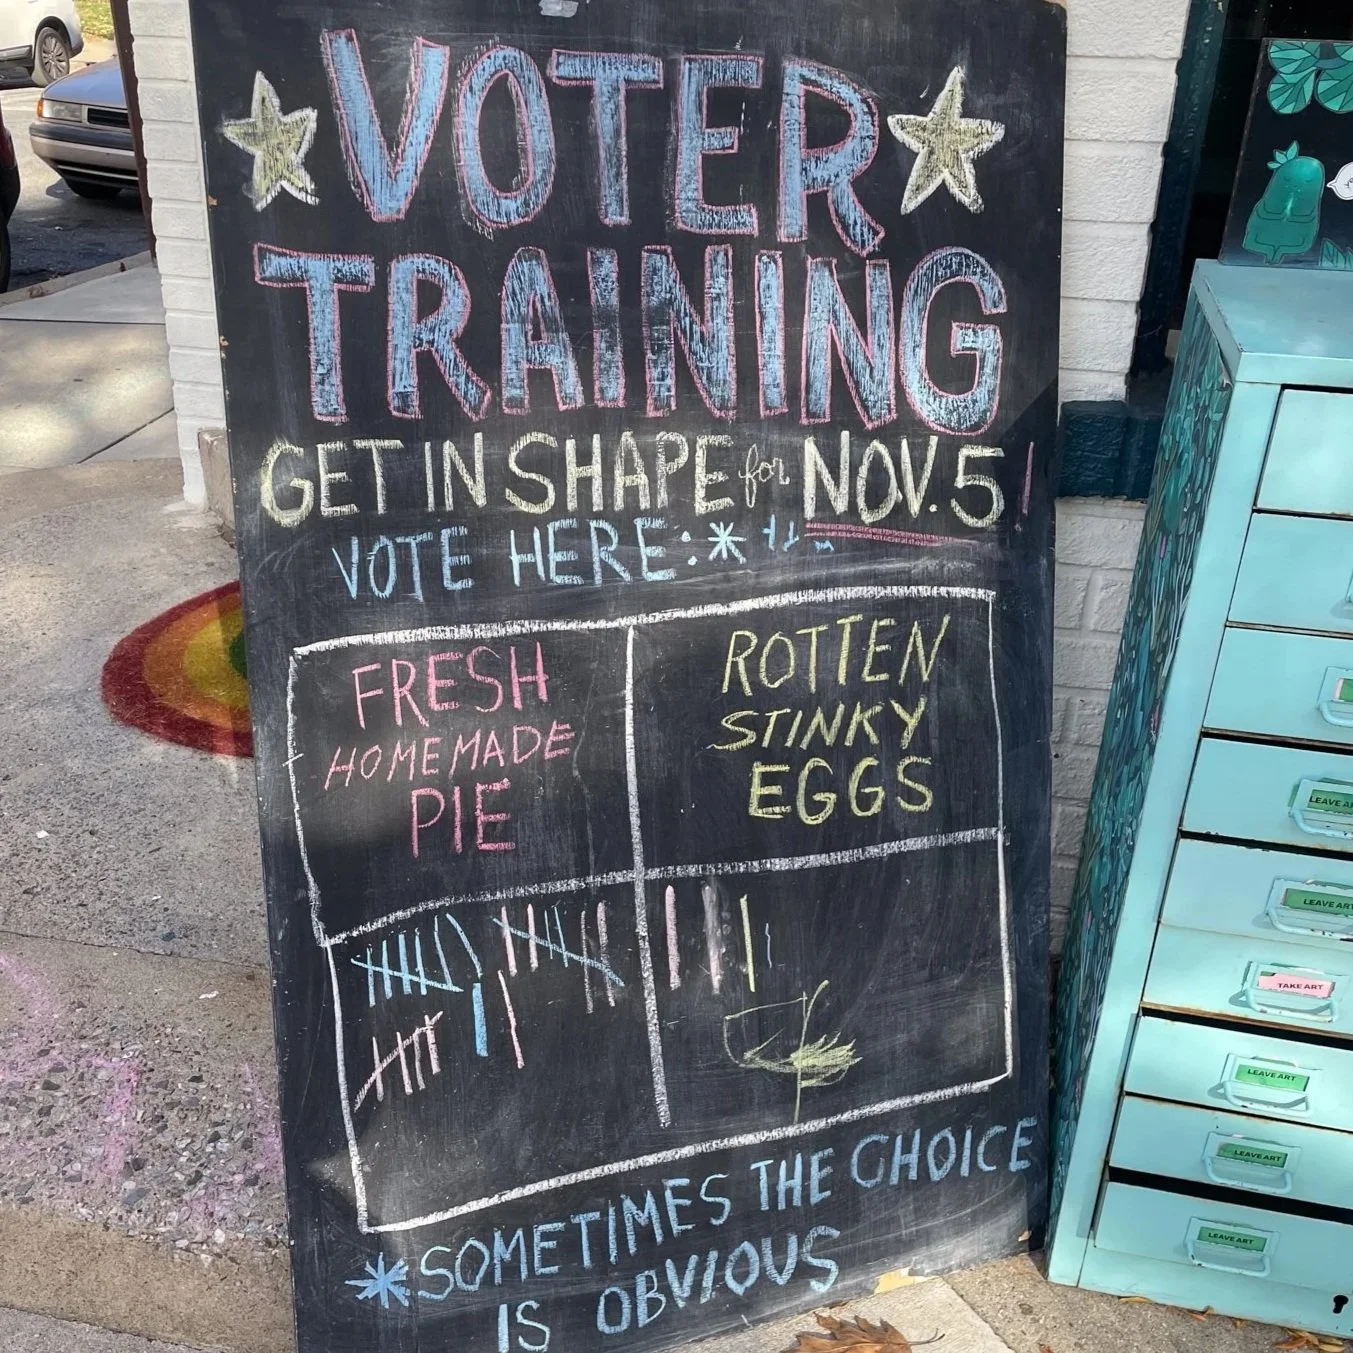 VOTER
TRAINING
GET IN SHAPE for NOV. 5!
VOTE HERE:*
FRESH
HOMEMADE
PIE
ROTTEN
STINKY
EGGS
*SOMETIMES THE CHOICE
IS OBVIOUS
LEAVE ART
LEAVE ART
TAKE ART
LEAVE ART
LEAVE ART
LEAVE ART